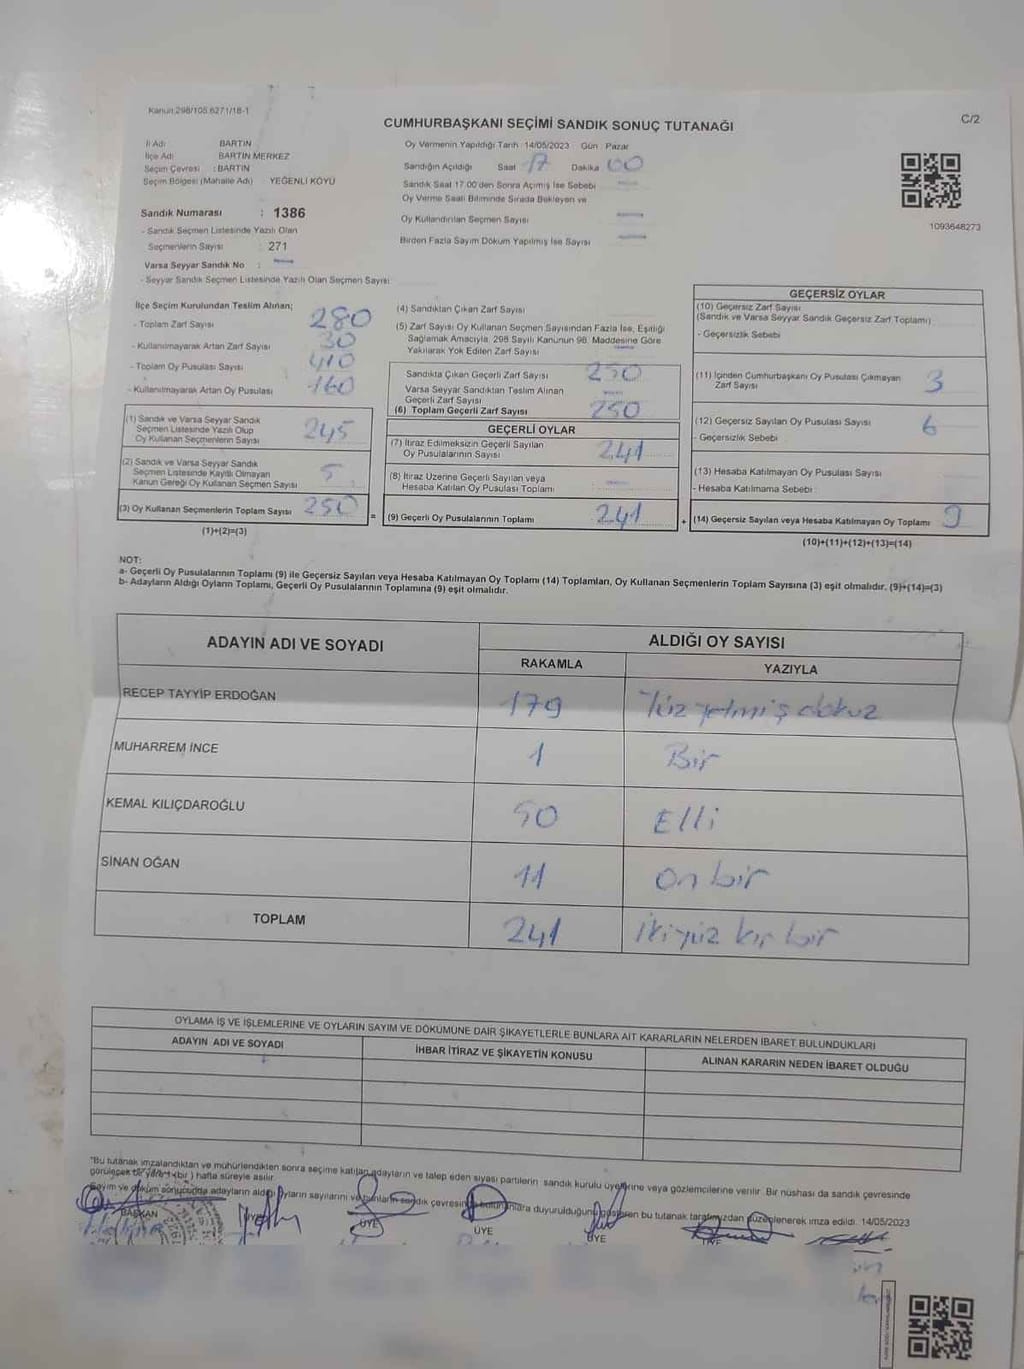 Kanun 298/105.6271/18-1
CUMHURBAŞKANI SEÇİMİ SANDIK SONUÇ TUTANAĞI
C/2
İl Adı BARTIN
İlçe Adı BARTIN MERKEZ
Seçim Çevresi : BARTIN
Seçim Bölgesi (Mahalle Adı) YEĞENLİ KÖYÜ
Sandık Numarası : 1386
- Sandık Seçmen Listesinde Yazılı Olan
Seçmenlerin Sayısı : 271
Varsa Seyyar Sandık No :
- Seyyar Sandık Seçmen Listesinde Yazılı Olan Seçmen Sayısı
Oy Vermenin Yapıldığı Tarih : 14/05/2023 Gün : Pazar
Sandığın Açıldığı Saat 17 Dakika 00
Sandık Saat 17.00'den Sonra Açımış İse Sebebi
Oy Verme Saati Bitiminde Sırada Bekleyen ve
Oy Kullandırılan Seçmen Sayısı
Birden Fazla Sayım Döküm Yapılmış İse Sayısı
1093648273
İlçe Seçim Kurulundan Teslim Alınan;
- Toplam Zarf Sayısı 280
- Kullanılmayarak Artan Zarf Sayısı 30
- Toplam Oy Pusulası Sayısı 410
- Kullanılmayarak Artan Oy Pusulası 160
(1) Sandık ve Varsa Seyyar Sandık
Seçmen Listesinde Yazılı Olup
Oy Kullanan Seçmenlerin Sayısı 245
(2) Sandık ve Varsa Seyyar Sandık
Seçmen Listesinde Kayıtlı Olmayan
Kanun Gereği Oy Kullanan Seçmen Sayısı 5
(3) Oy Kullanan Seçmenlerin Toplam Sayısı 250 =
(1)+(2)=(3)
(4) Sandıktan Çıkan Zarf Sayısı
(5) Zarf Sayısı Oy Kullanan Seçmen Sayısından Fazla İse, Eşitliği
Sağlamak Amacıyla, 298 Sayılı Kanunun 98. Maddesine Göre
Yakılarak Yok Edilen Zarf Sayısı
Sandıkta Çıkan Geçerli Zarf Sayısı 250
Varsa Seyyar Sandıktan Teslim Alınan
Geçerli Zarf Sayısı
(6) Toplam Geçerli Zarf Sayısı 250
GEÇERLİ OYLAR
(7) İtiraz Edilmeksizin Geçerli Sayılan
Oy Pusulalarının Sayısı 241
(8) İtiraz Üzerine Geçerli Sayılan veya
Hesaba Katılan Oy Pusulası Toplamı
(9) Geçerli Oy Pusulalarının Toplamı 241 +
GEÇERSİZ OYLAR
(10) Geçersiz Zarf Sayısı
(Sandık ve Varsa Seyyar Sandık Geçersiz Zarf Toplamı)
- Geçersizlik Sebebi
(11) İçinden Cumhurbaşkanı Oy Pusulası Çıkmayan
Zarf Sayısı 3
(12) Geçersiz Sayılan Oy Pusulası Sayısı 6
- Geçersizlik Sebebi
(13) Hesaba Katılmayan Oy Pusulası Sayısı
- Hesaba Katılmama Sebebi
(14) Geçersiz Sayılan veya Hesaba Katılmayan Oy Toplamı 9
(10)+(11)+(12)+(13)=(14)
NOT:
a- Geçerli Oy Pusulalarının Toplamı (9) ile Geçersiz Sayılan veya Hesaba Katılmayan Oy Toplamı (14) Toplamları, Oy Kullanan Seçmenlerin Toplam Sayısına (3) eşit olmalıdır. (9)+(14)=(3)
b- Adayların Aldığı Oyların Toplamı, Geçerli Oy Pusulalarının Toplamına (9) eşit olmalıdır.
ADAYIN ADI VE SOYADI ALDIĞI OY SAYISI
RAKAMLA YAZIYLA
RECEP TAYYİP ERDOĞAN 179 Yüz yetmiş dokuz
MUHARREM İNCE 1 Bir
KEMAL KILIÇDAROĞLU 50 Elli
SİNAN OĞAN 11 On bir
TOPLAM 241 İkiyüz kır bir
OYLAMA İŞ VE İŞLEMLERİNE VE OYLARIN SAYIM VE DÖKÜMÜNE DAİR ŞİKAYETLERLE BUNLARA AİT KARARLARIN NELERDEN İBARET BULUNDUKLARI
ADAYIN ADI VE SOYADI İHBAR İTİRAZ VE ŞİKAYETİN KONUSU ALINAN KARARIN NEDEN İBARET OLDUĞU
*Bu tutanak imzalandıktan ve mühürlendikten sonra seçime katılan adayların ve talep eden siyasi partilerin sandık kurulu üyelerine veya gözlemcilerine verilir. Bir nüshası da sandık çevresinde
görülecek bir yere 1 (bir) hafta süreyle asılır.
Sayım ve döküm sonucunda adayların aldığı oyların sayılarını ve bunların sandık çevresinde bulunanlara duyurulduğunu gösteren bu tutanak tarafımızdan düzenlenerek imza edildi. 14/05/2023
BAŞKAN ÜYE ÜYE ÜYE ÜYE ÜYE